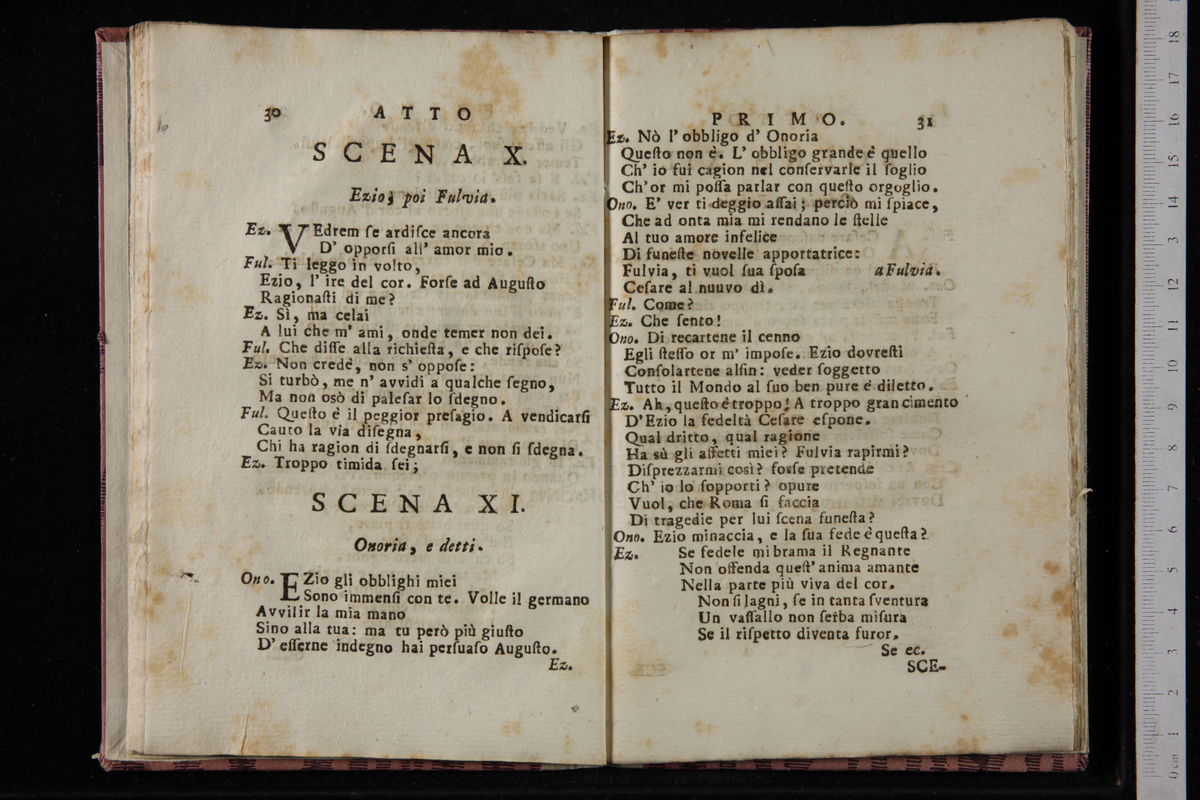 30 ATTO
SCENA X.
Ezio; poi Fulvia.
Ez. VEdrem ſe ardiſce ancora
D' opporſi all' amor mio.
Ful. Ti leggo in volto,
Ezio, l' ire del cor. Forſe ad Auguſto
Ragionaſti di me?
Ez. Sì, ma celai
A lui che m' ami, onde temer non dei.
Ful. Che diſſe alla richieſta, e che riſpoſe?
Ez. Non credè, non s' oppoſe:
Si turbò, me n' avvidi a qualche ſegno,
Ma non osò di paleſar lo ſdegno.
Ful. Queſto è il peggior preſagio. A vendicarſi
Cauto la via diſegna,
Chi ha ragion di ſdegnarſi, e non ſi ſdegna.
Ez. Troppo timida ſei;
SCENA XI.
Onoria, e detti.
Ono. EZio gli obblighi miei
Sono immenſi con te. Volle il germano
Avvilir la mia mano
Sino alla tua: ma tu però più giuſto
D' eſſerne indegno hai perſuaſo Auguſto.
Ez.
PRIMO. 31
Ez. Nò l' obbligo d' Onoria
Queſto non è. L' obbligo grande è quello
Ch' io fui cagion nel conſervarle il ſoglio
Ch' or mi poſſa parlar con queſto orgoglio.
Ono. E' ver ti deggio aſſai; perciò mi ſpiace,
Che ad onta mia mi rendano le ſtelle
Al tuo amore infelice
Di funeſte novelle apportatrice:
Fulvia, ti vuol ſua ſpoſa a Fulvia.
Ceſare al nuuvo dì.
Ful. Come?
Ez. Che ſento!
Ono. Di recartene il cenno
Egli ſteſſo or m' impoſe. Ezio dovreſti
Conſolartene alfin: veder ſoggetto
Tutto il Mondo al ſuo ben pure è diletto.
Ez. Ah, queſto è troppo! A troppo gran cimento
D'Ezio la fedeltà Ceſare eſpone.
Qual dritto, qual ragione
Ha sù gli affetti miei? Fulvia rapirmi?
Diſprezzarmi così? forſe pretende
Ch' io lo ſopporti? opure
Vuol, che Roma ſi faccia
Di tragedie per lui ſcena funeſta?
Ono. Ezio minaccia, e la ſua fede è queſta?
Ez. Se fedele mi brama il Regnante
Non offenda queſt' anima amante
Nella parte più viva del cor.
Non ſi lagni, ſe in tanta ſventura
Un vaſſallo non ſerba miſura
Se il riſpetto diventa furor.
Se ec.
SCE-